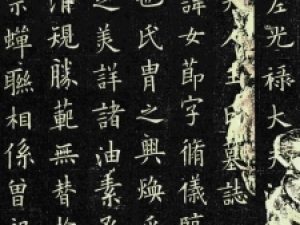 左光禄大夫
夫人王氏墓誌
諱女節字脩儀臨
也氏冑之興煥乎
之美詳諸油素
清規勝範無替
蟬聯相係曾祖